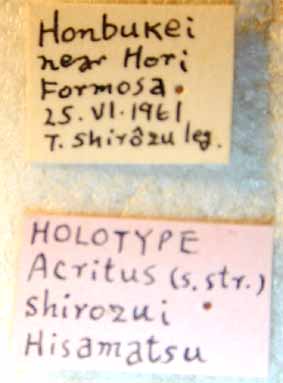 Honbukei
near Hori
Formosa.
25. VI. 1961
T. Shirôzu leg.
HOLOTYPE
Acritus (s. str.)
shirozui
Hisamatsu